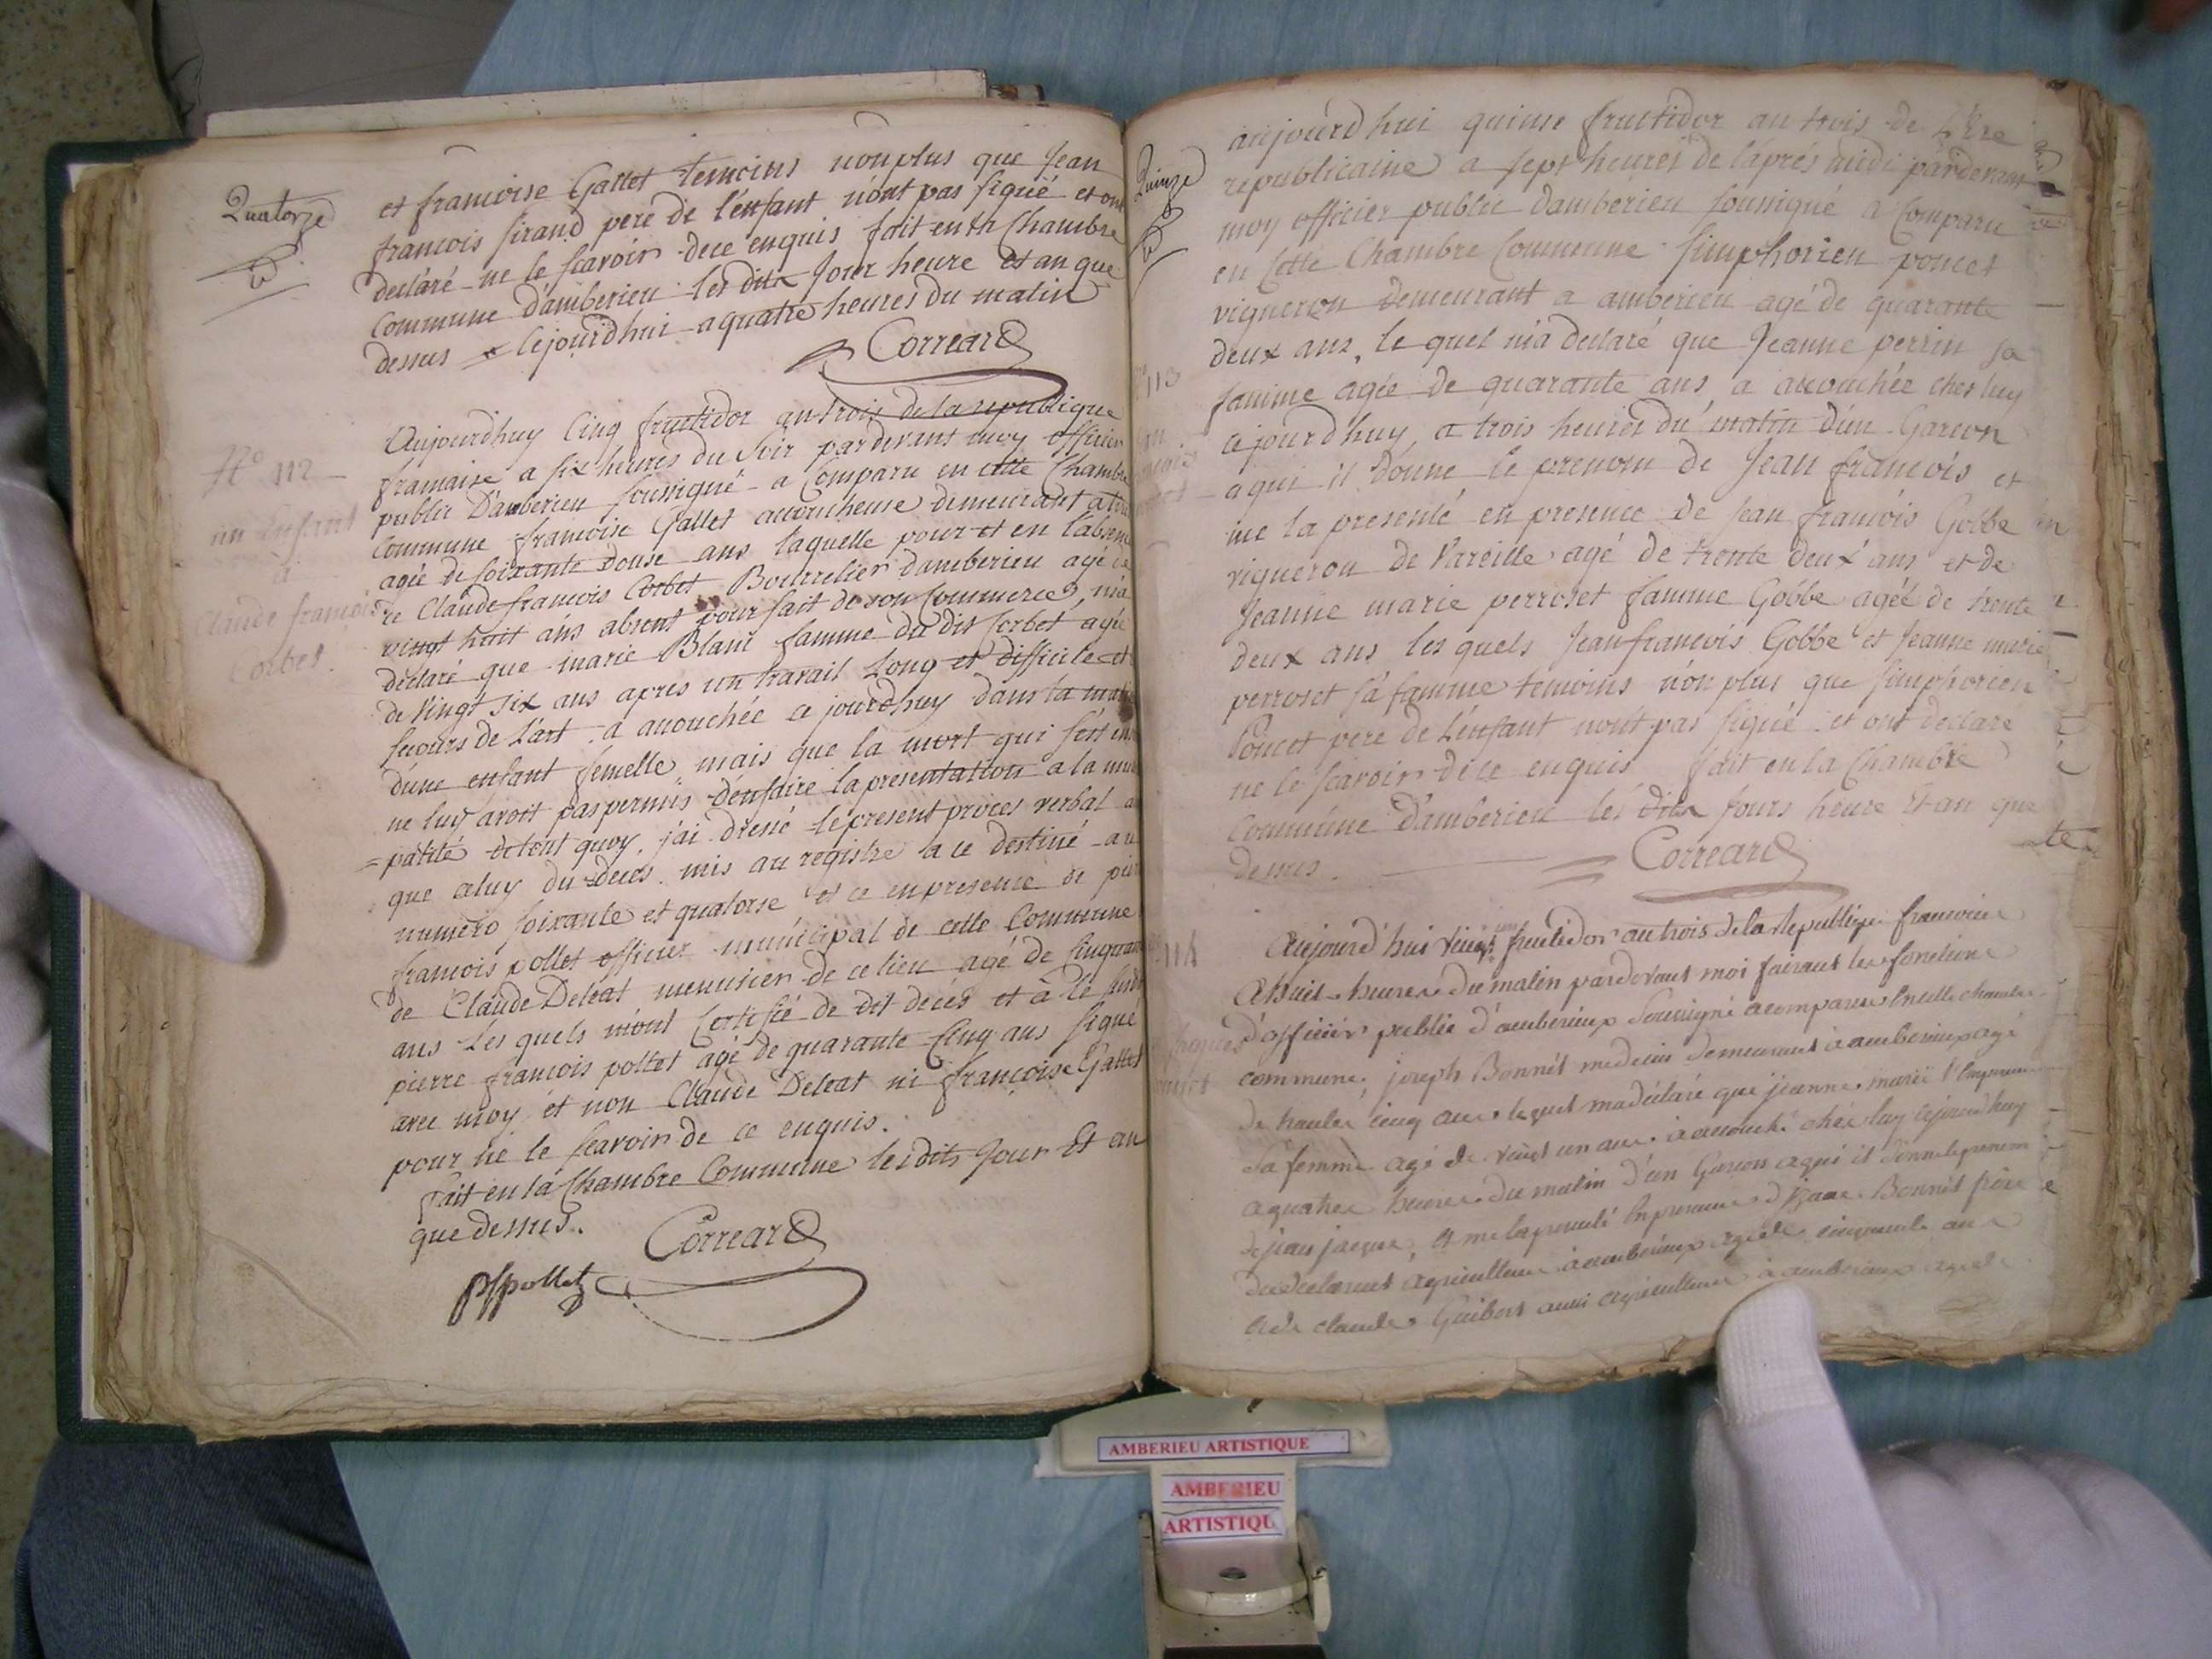 Quatorze
et francoise Gallet temoins nonplus que Jean
francois sirand pere de l'enfant n'ont pas signé et ont
declaré ne le scavoir de ce enquis fait en la Chambre
Commune d'amberieu les dits Jour heure et an que
dessus cejourd'hui a quatre heures du matin
Correard
N.o 112
un Enfant
a
Claude francois
Corbet.
Aujourdhuy Cinq fructidor an trois de la republique
francaise a six heures du soir pardevant moy officier
public D'amberieu soussigné a Comparu en cette Chambre
Commune francoise Gallet accoucheuse demeurant
agée de soixante douse ans laquelle pour et en l'absence
de Claude francois Corbet Bourrelier d'amberieu agé de
vingt huit ans absent pour fait de son Commerce, m'a
déclaré que marie Blanc famme du dit Corbet agée
de vingt six ans apres un travail Long et difficile et
secours de L'art a accouchée ce jourdhuy dans la
d'une enfant femelle, mais que la mort qui s'est
ne luy avoit pas permis d'en faire la presentation a la
palité de tout quoy j'ai dressé le present proces verbal
que celuy du deces mis au registre a ce destiné au
numero soixante et quatorse et ce en presence de
francois pollet officier municipal de cette Commune
de Claude Deleat menuisier de ce lieu agé de
ans Les quels m'ont Certifié de dit deces et à le
pierre francois pollet agé de quarante Cinq ans signé
avec moy et non Claude Deleat ni françoise Gallet
pour ne le scavoir de ce enquis.
fait en la Chambre Commune les dits Jour Et an
que dessus.
Correard
Pfpollet
Quinze
aujourd'hui quinse fructidor an trois de L'Ere
republicaine a sept heures de l'aprés midi pardevant
moy officier public d'amberieu soussigné a Comparu
en Cette Chambre Commune simphorien poncet
vigneron demeurant a amberieu agé de quarante
deux ans, le quel m'a declaré que Jeanne perrin sa
famme agée de quarante ans a accouchée ches luy
113
cejourd'huy a trois heures du matin d'un Garcon
a qui il donne le prenom de Jean francois et
me la presenté en presence de Jean francois Gobbe
vigneron de Vareille agé de trente deux ans et de
Jeanne marie perroset famme Gobbe agée de trente
deux ans les quels Jean francois Gobbe et Jeanne marie
perroset sa famme temoins nón plus que simphorien
Poncet pere de L'enfant n'ont pas signé et ont declaré
ne le scavoir de ce enquis fait en la Chambre
Commune d'amberieu les dits Jours heure Et an que
dessus.
Correard
114
Aujourd'hui vingt fructidor an trois de la Republique francoise
A huit heures du matin pardevant moi faisant les fonctions
d'officier public d'amberieux soussigné a comparu en cette chambre
commune, joseph Bonnet medecin demeurant à amberieux agé
de trente cinq ans lequel m'a déclaré que jeanne marie
sa femme agé de vingt un ans a accouché chés luy cejourdhuy
a quatre heures du matin d'un Garcon a qui il donne le prenom
de jean jacque, et me la presenté en presence d'izaac Bonnet frère
du declarant agriculteur à amberieux agé de cinquante ans
et de claude Guibert aussi agriculteur à amberieux agé de
AMBERIEU ARTISTIQUE
AMBERIEU
ARTISTIQU